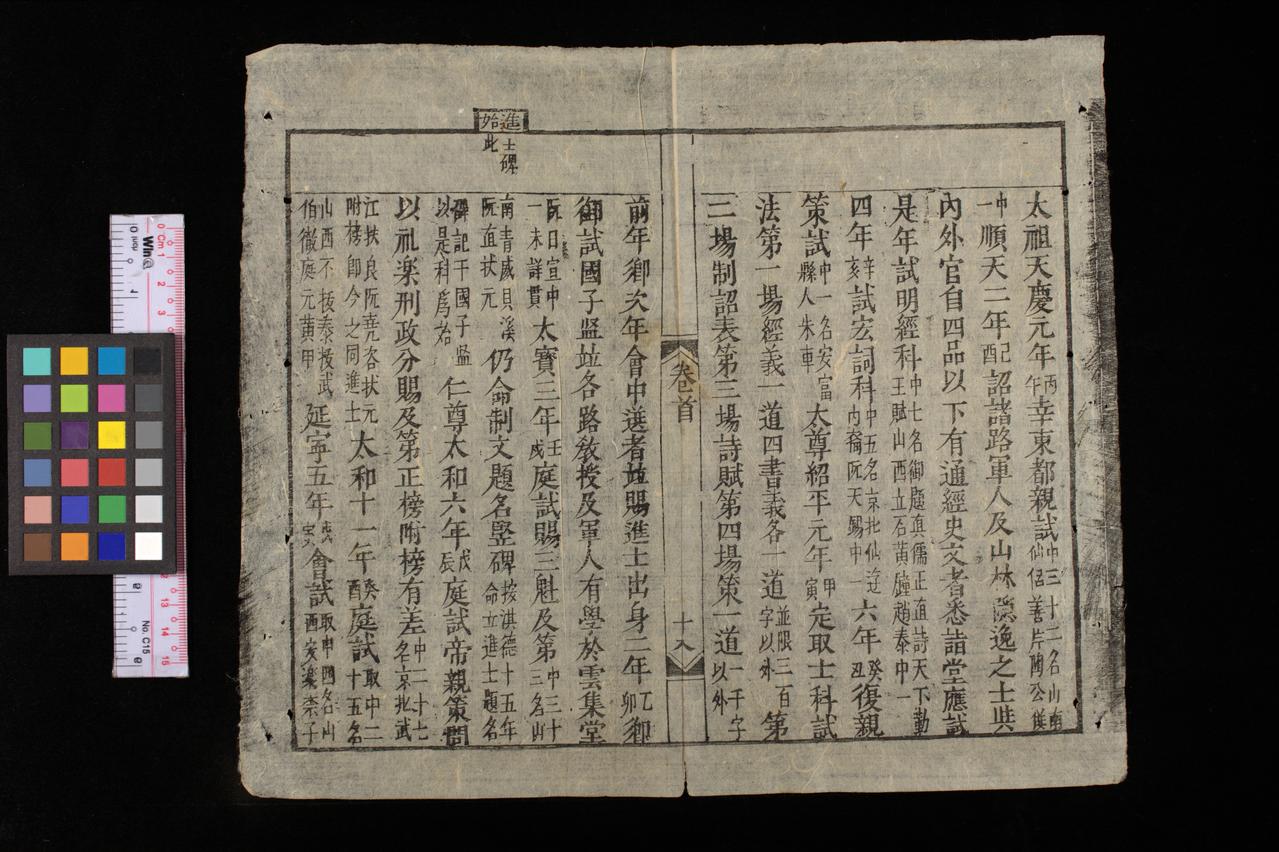 太祖天慶元年丙午幸東都親試中三十二名山南仙侶善片陶公僎
中一順天二年己酉詔諸路軍人及山林隱逸之士與
內外官自四品以下有通經史文者悉詣堂應試
是年試明經科中七名御題真儒正直詩天下勤王賦山西立石黃鐘趙泰中一
四年辛亥試宏詞科中五名京北仙遊內裔阮天賜中一六年癸丑復親
策試中一名安富縣人朱車太尊紹平元年甲寅定取士科試
法第一場經義一道四書義各一道並限三百字以外第
二場制詔表第三場詩賦第四場策一道一千字以外
卷首
十八
前年鄉次年會中選者並賜進士出身二年乙卯鄉
御試國子監並各路教授及軍人有學於雲集堂
阮日宣中一未詳貫太寶三年壬戌庭試賜三魁及第中三十三名山
南青威貝溪阮直狀元仍命制文題名豎碑按洪德十五年命立進士題名
碑記于國子監以是科為始仁尊太和六年戊辰庭試帝親策問
以礼楽刑政分賜及第正榜附榜有差中二十七名京北武
江扶良阮堯咨狀元附榜即今之同進士太和十一年癸酉庭試取中二十五名
山西不拔泰拔武伯徹庭元黃甲延寧五年會試取中四名山西安楽柰子
進士碑
始此